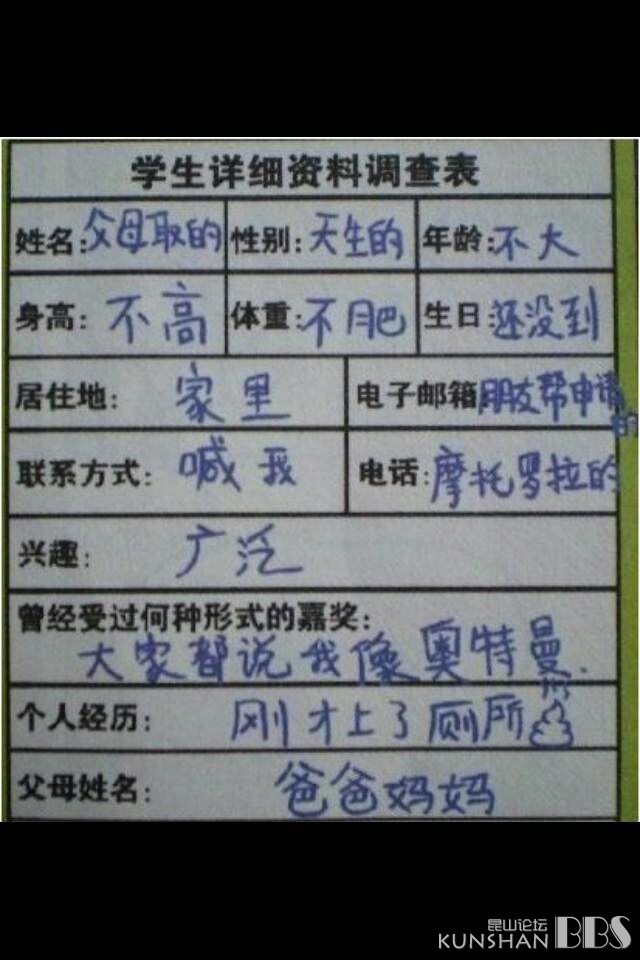 学生详细资料调查表
姓名:父母取的 性别:天生的 年龄:不大
身高:不高 体重:不肥 生日:还没到
居住地:家里 电子邮箱:朋友帮申请的
联系方式:喊我 电话:摩托罗拉的
兴趣:广泛
曾经受过何种形式的嘉奖:
大家都说我像奥特曼.
个人经历:刚才上了厕所
父母姓名:爸爸妈妈
昆山论坛
KUNSHAN BBS